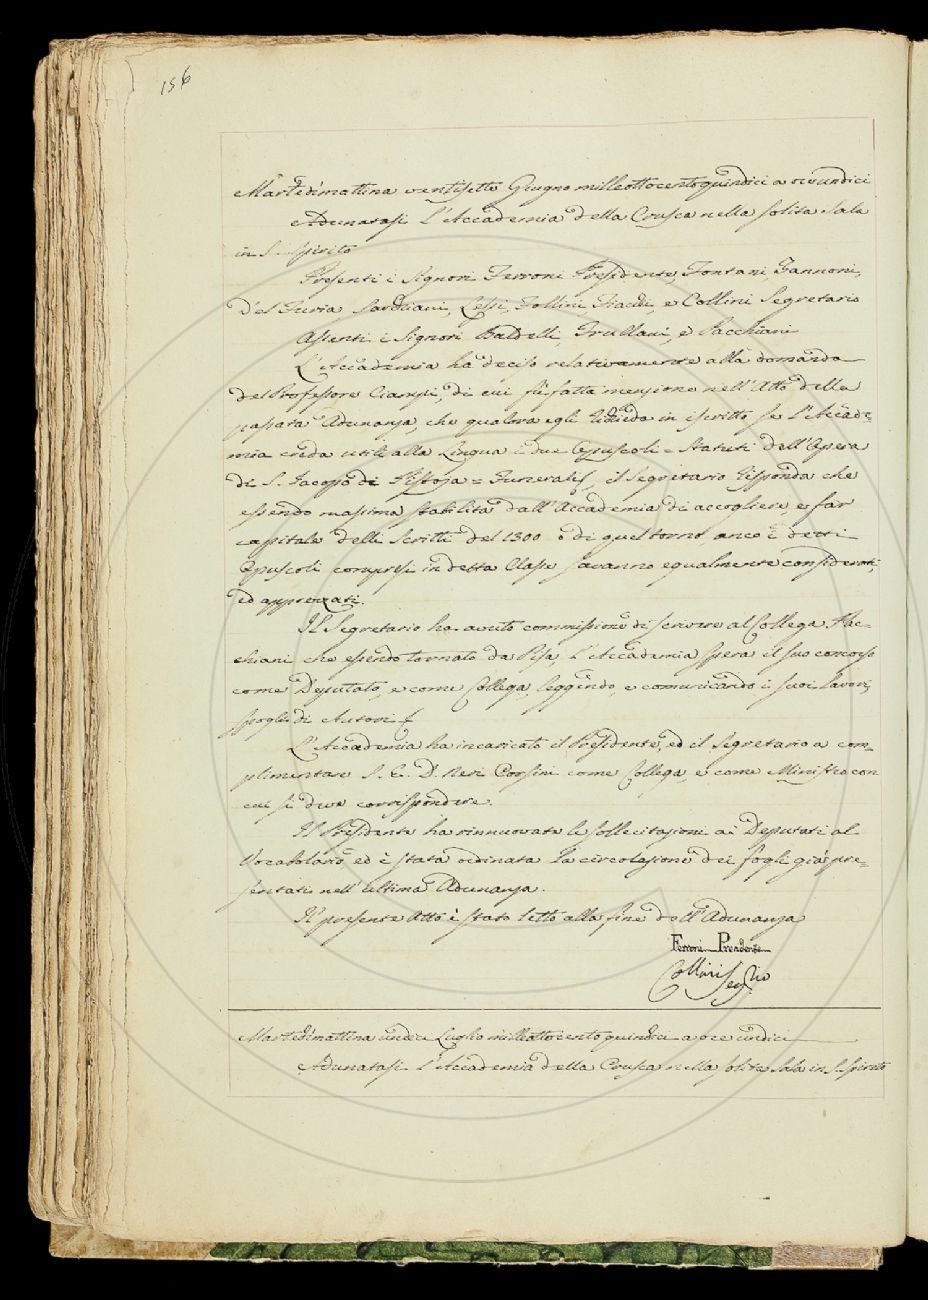 156
Martedì mattina ventisette Giugno milleottocentoquindici a ore undici
Adunatasi l'Accademia della Crusca nella solita Sala
in S. Spirito
Presenti i Signori Ferroni Presidente, Fontani, Zannoni,
Del Furia Sarchiani, Lessi, Follini, Fiacchi, e Collini Segretario
Assenti i Signori Baldelli, Grullani, e Pacchiani
L'Accademia ha deciso relativamente alla domanda
del Professore Ciampi, di cui fù fatta menzione nell'Atto della
passata Adunanza, che qualora egli richieda in iscritto se l'Accade=
mia creda utili alla Lingua i due Opuscoli = Statuti dell'Opera
di S. Jacopo di Pistoja = Funerali, il Segretario risponda che
essendo massima stabilita dall'Accademia di accogliere, e far
capitale delli Scritti del 1300 o di quel torno, anco i detti
Opuscoli compresi in detta Classe saranno egualmente considerati,
ed apprezzati.
Il Segretario ha avuto commissione di scrivere al Collega Pac=
chiani che essendo tornato da Pisa, l'Accademia spera il suo concorso
come Deputato, e come Collega, leggendo, e comunicando i suoi lavori,
spogli di Autori
L'Accademia ha incaricato il Presidente, ed il Segretario a com=
plimentare S. E. D. Neri Corsini come Collega, e come Ministro con
cui si deve corrispondere.
Il Presidente ha rinnuovate le sollecitazioni ai Deputati al
Vocabolario ed è stata ordinata la circolazione dei fogli già pre=
sentati nell'ultima Adunanza.
Il presente Atto è stato letto alla fine dell'Adunanza
Ferroni Presidente
Collini Seg.rio
Martedì mattina undici Luglio milleottocentoquindici a ore undici
Adunatasi l'Accademia della Crusca nella solita Sala in S. Spirito